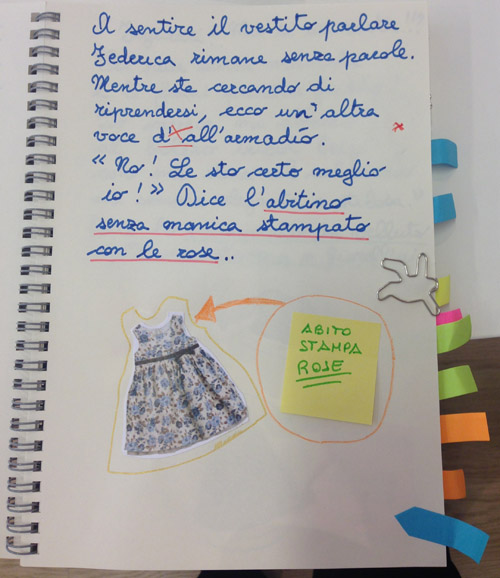 A sentire il vestito parlare
Federica rimane senza parole.
Mentre sta cercando di
riprendersi, ecco un'altra
voce d'all'armadio.
"No! Le sto certo meglio
io!" Dice l'abitino
senza manica stampato
con le rose..
ABITO
STAMPA
ROSE